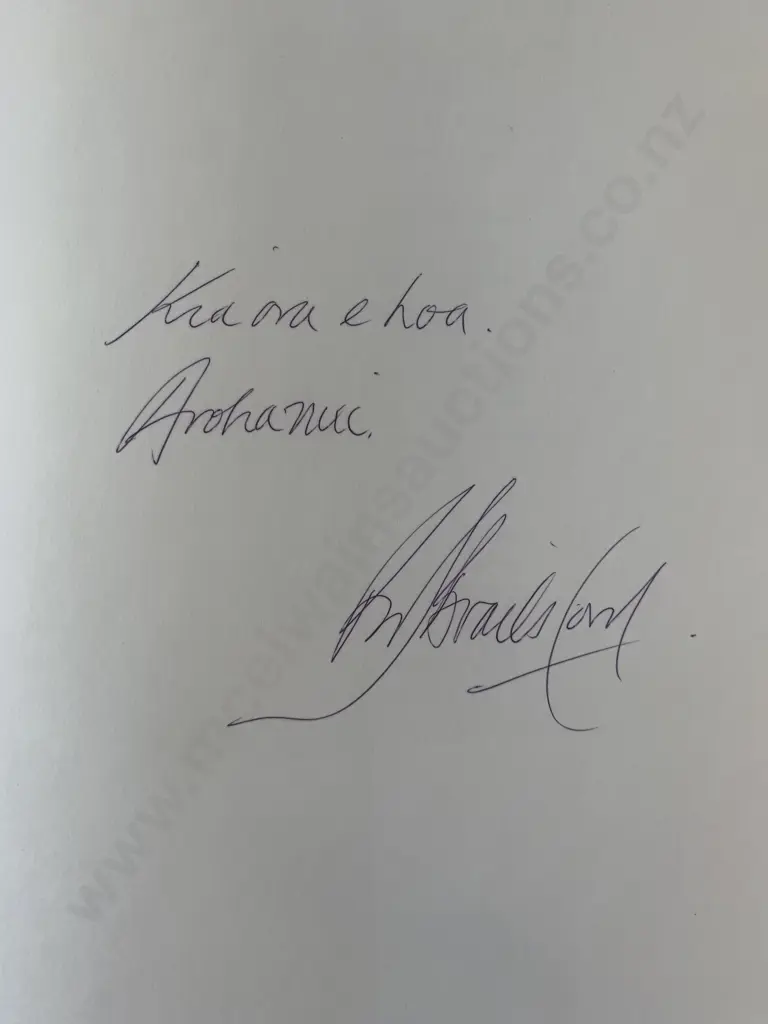 Kia ora e hoa.
Arohanui.
Barry Brailsford.
www.mcelwainsauctions.co.nz